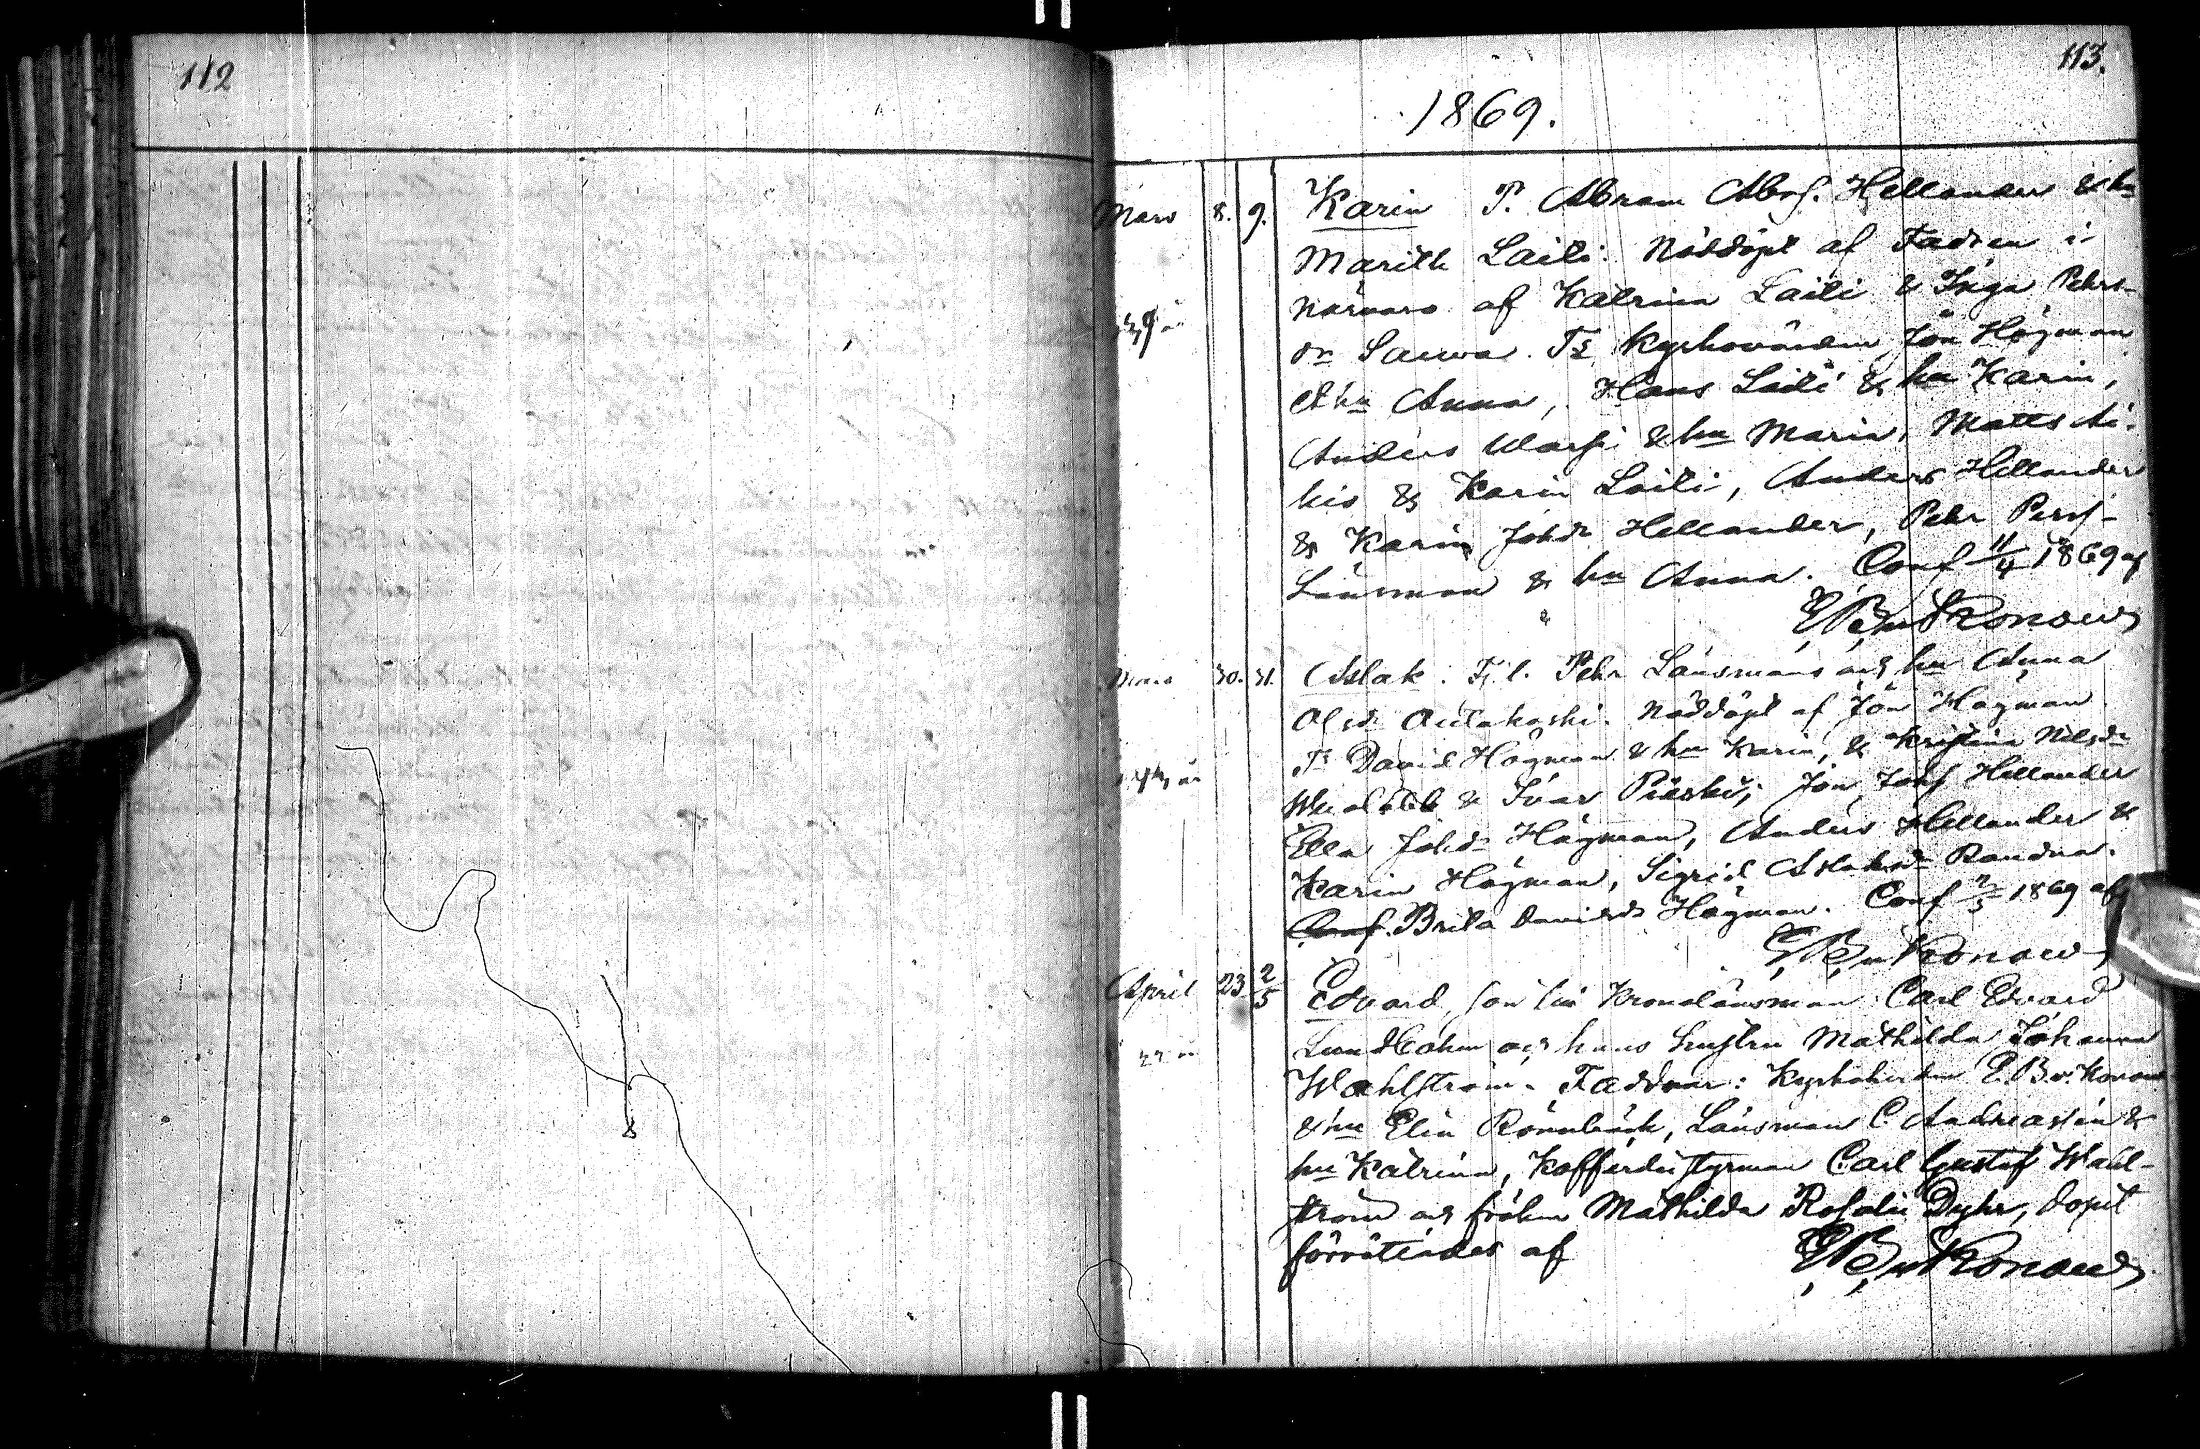 112
113.
1869.
Mars 8. 9. Karin F. Abram Abrs. Hellander & hu
Marith Laiti. Nöddöpt af Fadren i
närvaro af Katrina Laiti & Inga Pehrs-
dr Fs Kyrkovärden Jon Högman
& hu Anna, Hans Laiti & hu Karin,
Anders & hu Maria, Matts Ai-
kio & Karin Laiti, Anders Hellander
& Karin Johdr Hellander, Pehr Pers.
Länsman & hu Anna. Conf 11/4 1869 af
EB v Konow
Mars 30. 31. Aslak. F. l. Pehr Länsmans och hu Anna
Olsdr Nöddöpt af Jon Högman
Fs David Högman & hu Karin, & Kristina Nilsdr
& Ivar Pieski, Jon Johs Hellander
Ella Johdr Högman, Anders Hellander &
Karin Högman, Sigrid Aslaksdr
Conf. Brita Davidsdr Högman. Conf 2/5 1869 af
EB v Konow
April 23 2/5 Edvard, son till Kronolänsman Carl Edvard
Lundbohm och hans hustru Mathilda Johanna
Wahlström. Faddrar: Kyrkoherden E. B v. Konow
& hu Elin Rönnbäck, Länsman C. Andreassén &
hu Katrina, Kofferdistyrman Carl Gustaf Wahl-
ström och frökn Mathilda Rosalie Dyhr, dopet
förrättades af
EB v Konow